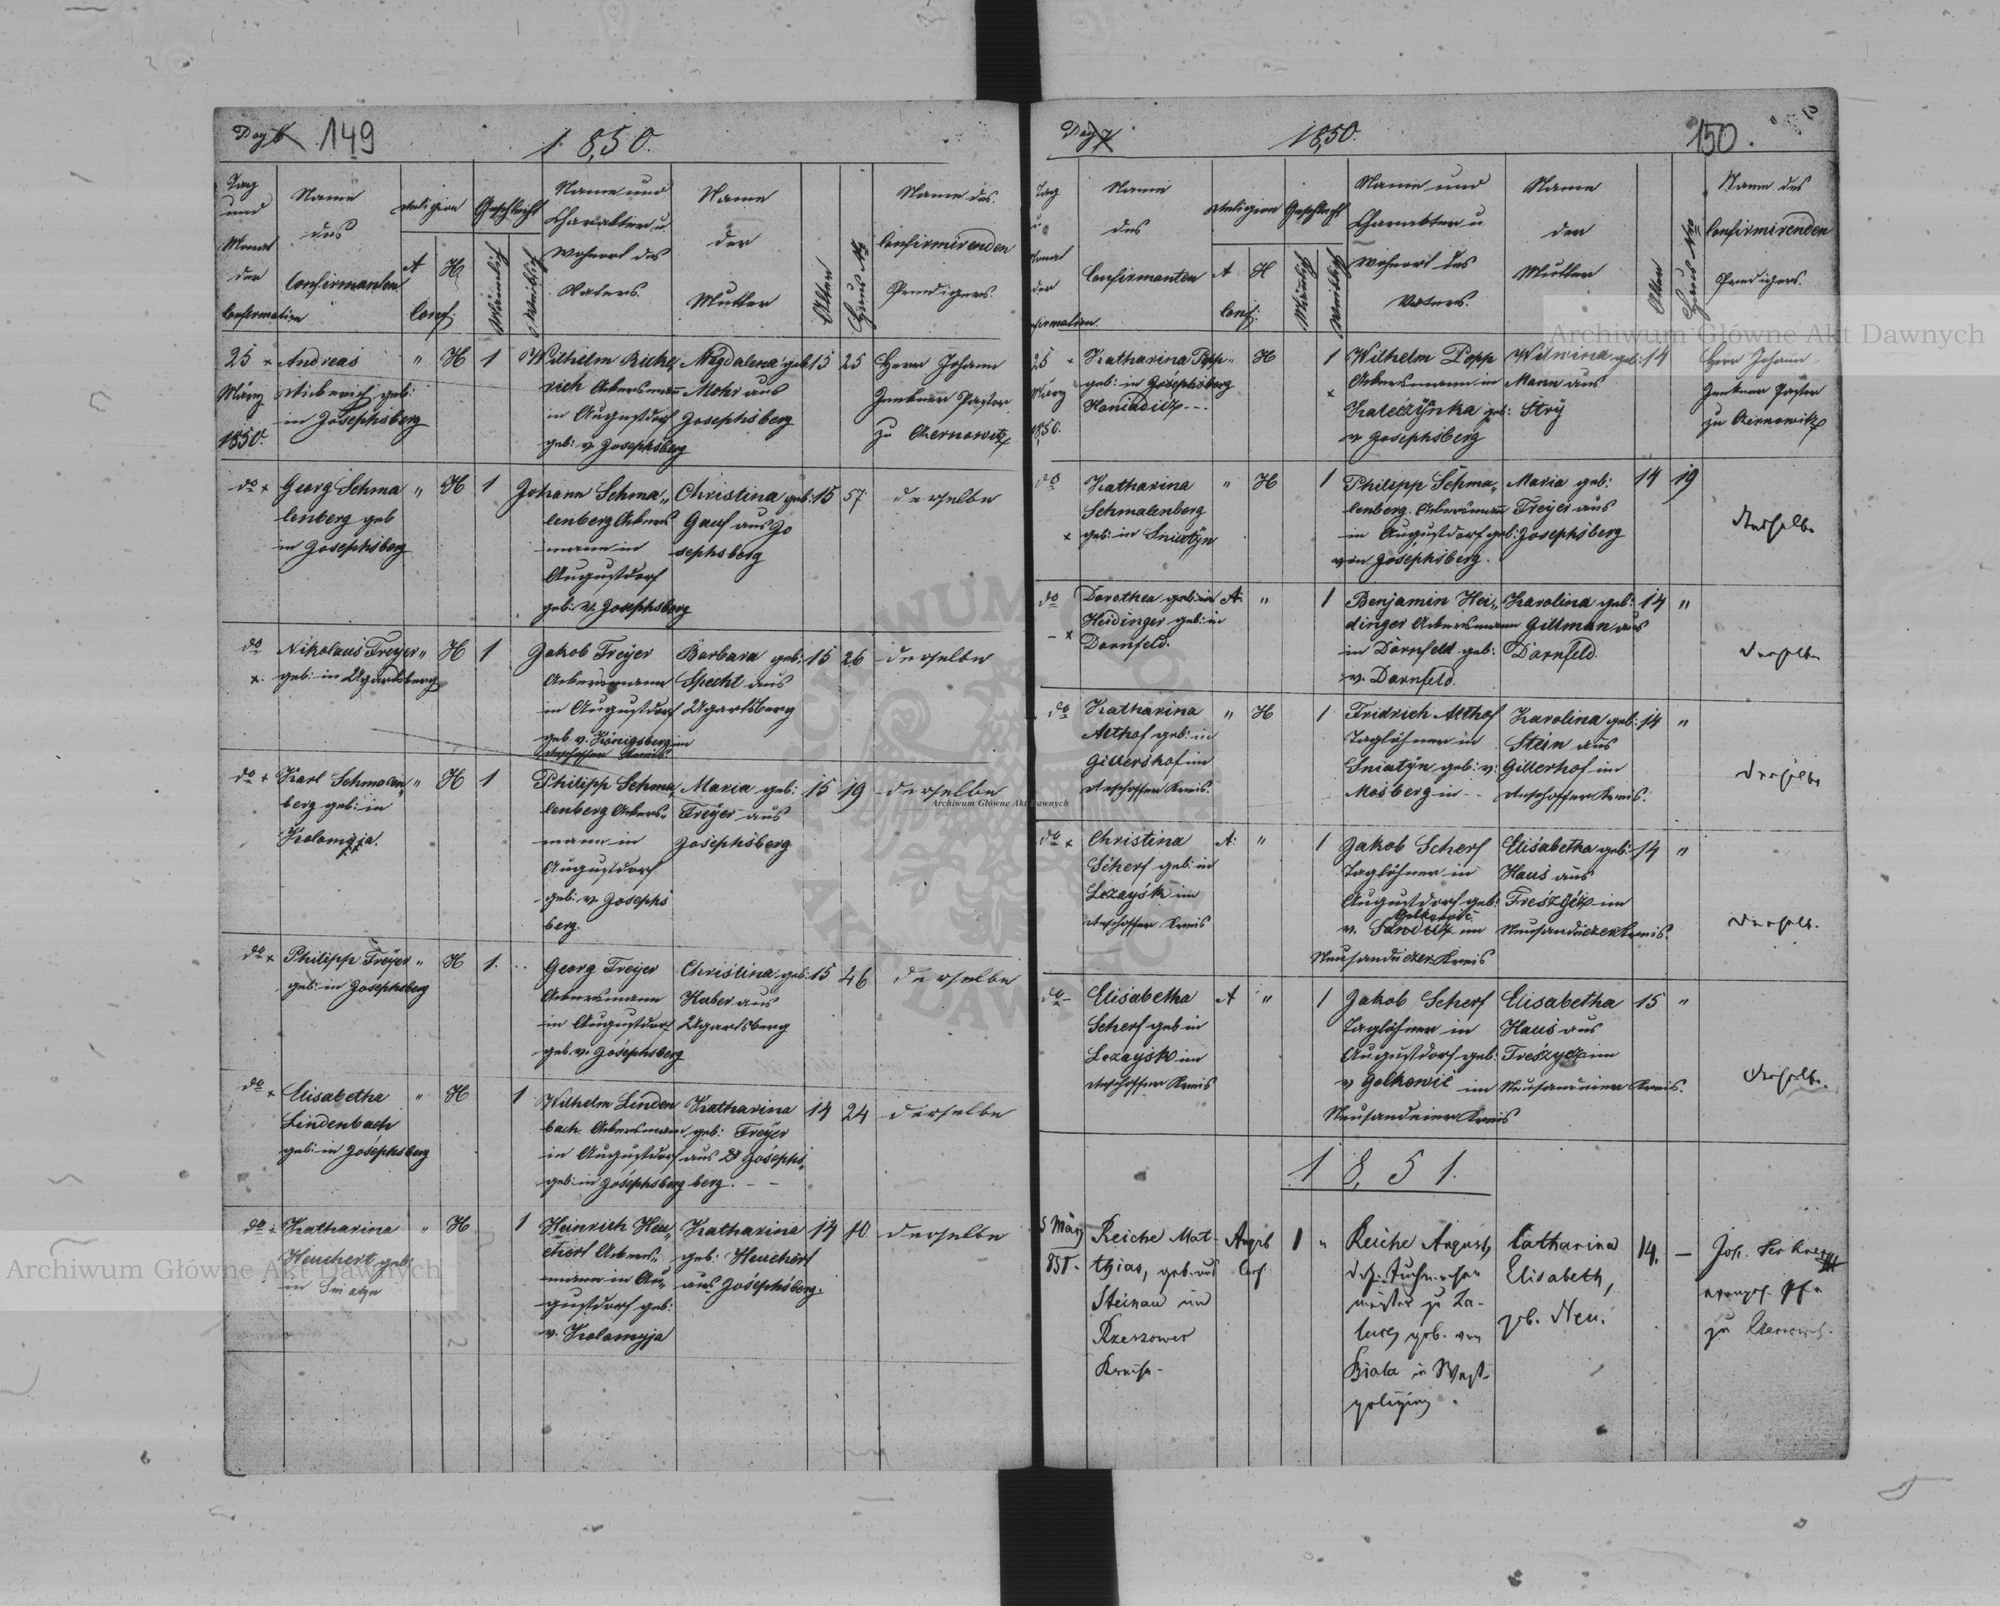 Pag 6 149
1850.
Tag und Monat der Confirmation
Name des Confirmanten
Religion
A H
Conf:
Geschlecht
Männlich
Weiblich
Name und Charakter u Wohnort des Vaters.
Name der Mutter
Alter
Haus No
Name des Confirmirenden Predigers.
25 März 1850.
Andreas
geb:
in Josephsberg
" H 1
Wilhelm
rich Ackersmann
in Augustdorf
geb: v Josephsberg
Magdalena geb:
Mohr aus
Josephsberg
15 25
Herr Johann
Pastor
zu Czernowitz
do
Georg Schma
lenberg geb
in Josephsberg
" H 1
Johann Schma„
lenberg Ackers
mann in
Augustdorf
geb: v. Josephsberg
Christina geb:
Gauf aus Jo
sephsberg
15 57
derselbe
do
Nikolaus Freyer
geb: in Ugartsberg
" H 1
Jakob Freyer
Ackersmann
in Augustdorf
geb v. Königsberg im
Barbara geb:
Specht aus
Ugartsberg
15 26
derselbe
do
Karl Schmalen„
berg geb: in
Kolomyja.
" H 1
Philipp Schma
lenberg Ackers„
mann in
Augustdorf
geb: v. Josephs
berg.
Maria geb:
Freyer aus
Josephsberg
15 19
derselbe
do
Philipp Freyer
geb: in Josephsberg
" H 1.
Georg Freyer
Ackersmann
in Augustdorf
geb v. Josephsberg
Christina geb:
Huber aus
Ugartsberg
15 46
derselbe
do
Elisabetha
Lindenbach
geb: in Josephsberg
" H 1
Wilhelm Linden
bach. Ackersmann
in Augustdorf
geb: in Josephsberg
Katharina
geb: Freyer
aus Josephs„
berg. – –
14 24
derselbe
do
Katharina
Heuchert geb:
in Sniatyn
" H 1
Heinrich Heu„
chert Ackers„
mann in Au„
gustdorf geb:
v. Kolomyja
Katharina
geb: Heuchert
aus Josephsberg.
14 10
derselbe
Pag 7
1850.
150.
Tag u Monat der Confirmation.
Name des Confirmanten
Religion
A H
Conf:
Geschlecht
Männlich
Weiblich
Name und Charakter u Wohnort des Vaters.
Name der Mutter
Alter
Haus Nro
Name des Confirmirenden Predigers.
25 März 1850.
Katharina Popp
geb: in Josephsberg
" H 1
Wilhelm Popp
Ackersmann in
geb:
v Josephsberg
geb:
Mann aus
Stry
14
Herr Johann
Pastor
zu Czernowitz
do
Katharina
Schmalenberg
geb: in Sniatyn
" H 1
Philipp Schma„
lenberg. Ackersmann
in Augustdorf geb:
von Josephsberg.
Maria geb:
Freyer aus
Josephsberg
14 19
derselbe
do
Dorothea geb: in
Heidinger geb: in
Dornfeld.
A " 1
Benjamin Hei„
dinger Ackersmann
in Dornfeld geb:
v. Dornfeld.
Karolina geb:
Gillman aus
Dornfeld.
14 "
derselbe
do
Katharina
Althof geb: in
Gillershof im
Kreis.
" H 1
Fridrich Althof
Taglöhner in
Sniatyn geb: v:
Mosberg in –
Karolina geb:
Stein aus
Gillerhof im
Kreis.
14 "
derselbe
do
Christina
Scherf geb: in
Lezaysk im
Kreis
A " 1
Jakob Scherf
Taglöhner in
Augustdorf geb:
Golkowic
v. Sandetz im
Neusandeczer Kreis
Elisabetha geb:
Haus aus
im
Neusandeczer Kreis.
14 "
derselb.
do
Elisabetha
Scherf geb in
Lezaysk im
Kreis
A " 1
Jakob Scherf
Taglöhner in
Augustdorf geb:
v Golkowic im
Neusandeier Kreis
Elisabetha
Haus aus
im
Neusandeier Kreis.
15 "
derselbe.
1851.
5 März
851.
Reiche Mat-
thias, geb. aus
Steinau im
Rzeszower
Kreise.
Augsb
Conf
1 "
Reiche August,
Tuchmacher
meister zu Za-
lucz geb. von
Biala in West-
galizien.
Catharina
Elisabeth,
geb. Neu.
14. –
Joh.
evangel. Pf.
zu
Archiwum Główne Akt Dawnych
Archiwum Główne Akt Dawnych
Archiwum Główne Akt Dawnych